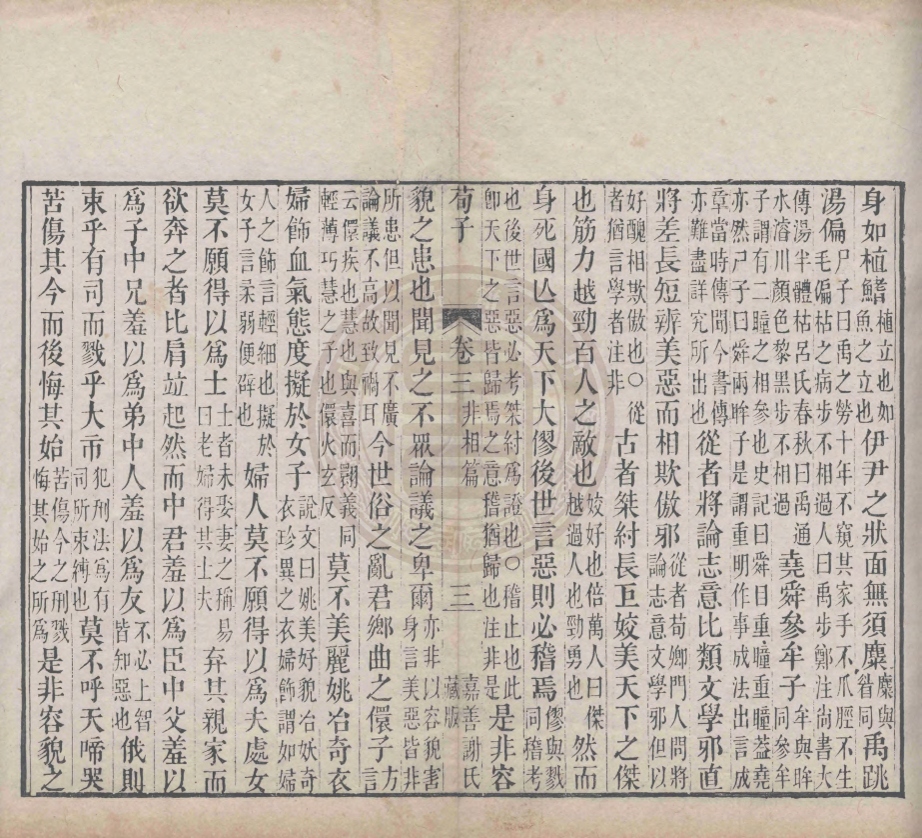 身如植鰭植立也如魚之立也伊尹之狀面無須麋麋與眉同禹跳
湯偏尸子曰禹之勞十年不窺其家手不爪脛不生毛偏枯之病步不相過人曰禹步鄭注尚書大
傳湯半體枯呂氏春秋曰禹通水濬川顏色黎黑步不相過堯舜參牟子牟與眸同參牟
子謂有二瞳之相參也史記曰舜目重瞳重瞳葢堯亦然尸子曰舜兩眸子是謂重明作事成法出言成
章當時傳聞今書傳亦難盡詳究所出也從者將論志意比類文學邪直
將差長短辨美惡而相欺傲邪從者荀卿門人問將論志意文學邪但以
好醜相欺傲也○從者猶言學者注非古者桀紂長巨姣美天下之傑
也筋力越勁百人之敵也姣好也倍萬人曰傑越過人也勁勇也然而
身死國亾爲天下大僇後世言惡則必稽焉僇與戮同稽考
也後世言惡必考桀紂爲證也○稽止也此卽天下之惡皆歸焉之意稽猶歸也注非是是非容
荀子 卷三 非相篇 三 嘉善謝氏藏版
貌之患也聞見之不眾論議之卑爾亦非以容貌害身言美惡皆非
所患但以聞見不廣論議不高故致禍耳今世俗之亂君鄉曲之儇子方言
云儇疾也慧也與喜而翾義同輕薄巧慧之子也儇火玄反莫不美麗姚冶奇衣
婦飾血氣態度擬於女子說文曰姚美好貌冶妖奇衣珍異之衣婦飾謂如婦
人之飾言輕細也擬於女子言柔弱便辟也婦人莫不願得以爲夫處女
莫不願得以爲士士者未娶妻之稱易曰老婦得其士夫棄其親家而
欲奔之者比肩竝起然而中君羞以爲臣中父羞以
爲子中兄羞以爲弟中人羞以爲友不必上智皆知惡也俄則
束乎有司而戮乎大市犯刑法爲有司所束縛也莫不呼天啼哭
苦傷其今而後悔其始苦傷今之刑戮悔其始之所爲是非容貌之